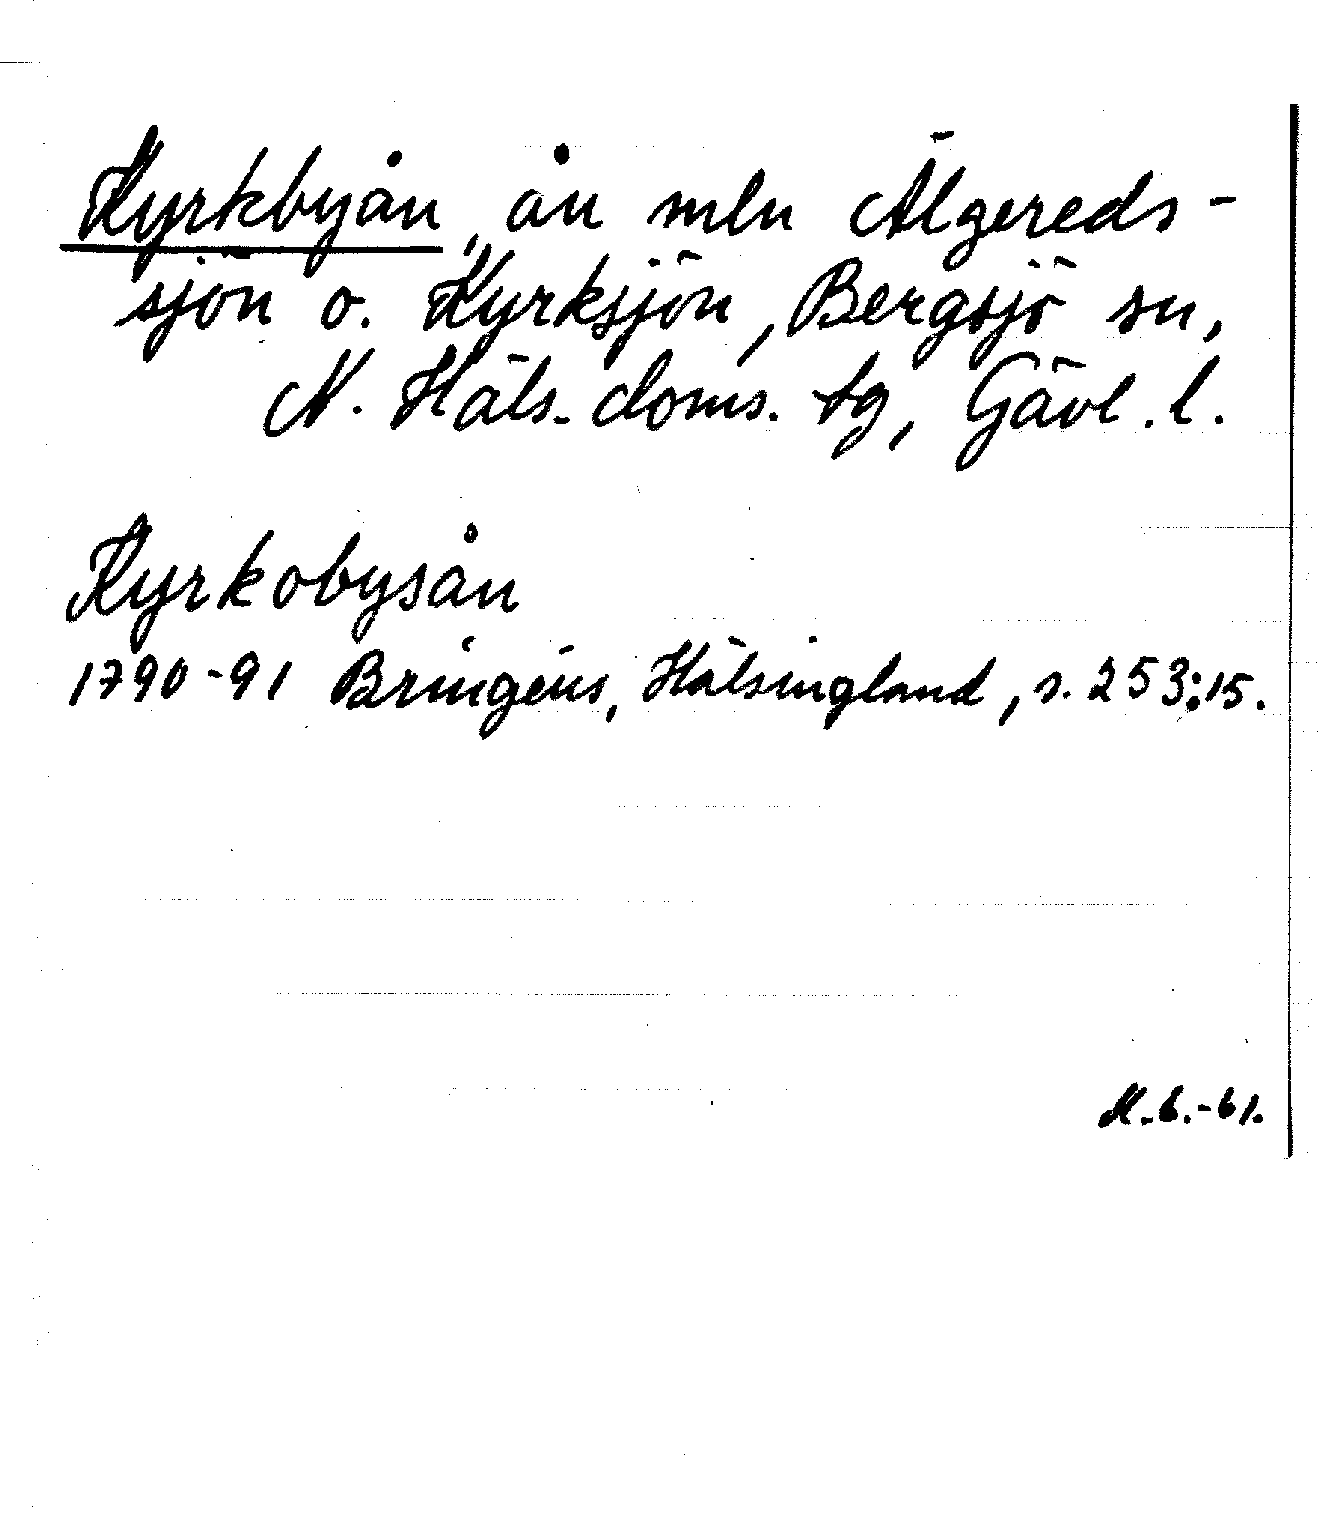 Kyrkbyån, ån mln Älgereds-
sjön o. Kyrksjön, Bergsjö sn,
N. Häls. doms. tg, Gävl. l.
Kyrkobysån
1790-91 Bringéus, Hälsingland, s. 253:15.
M.B.-61.